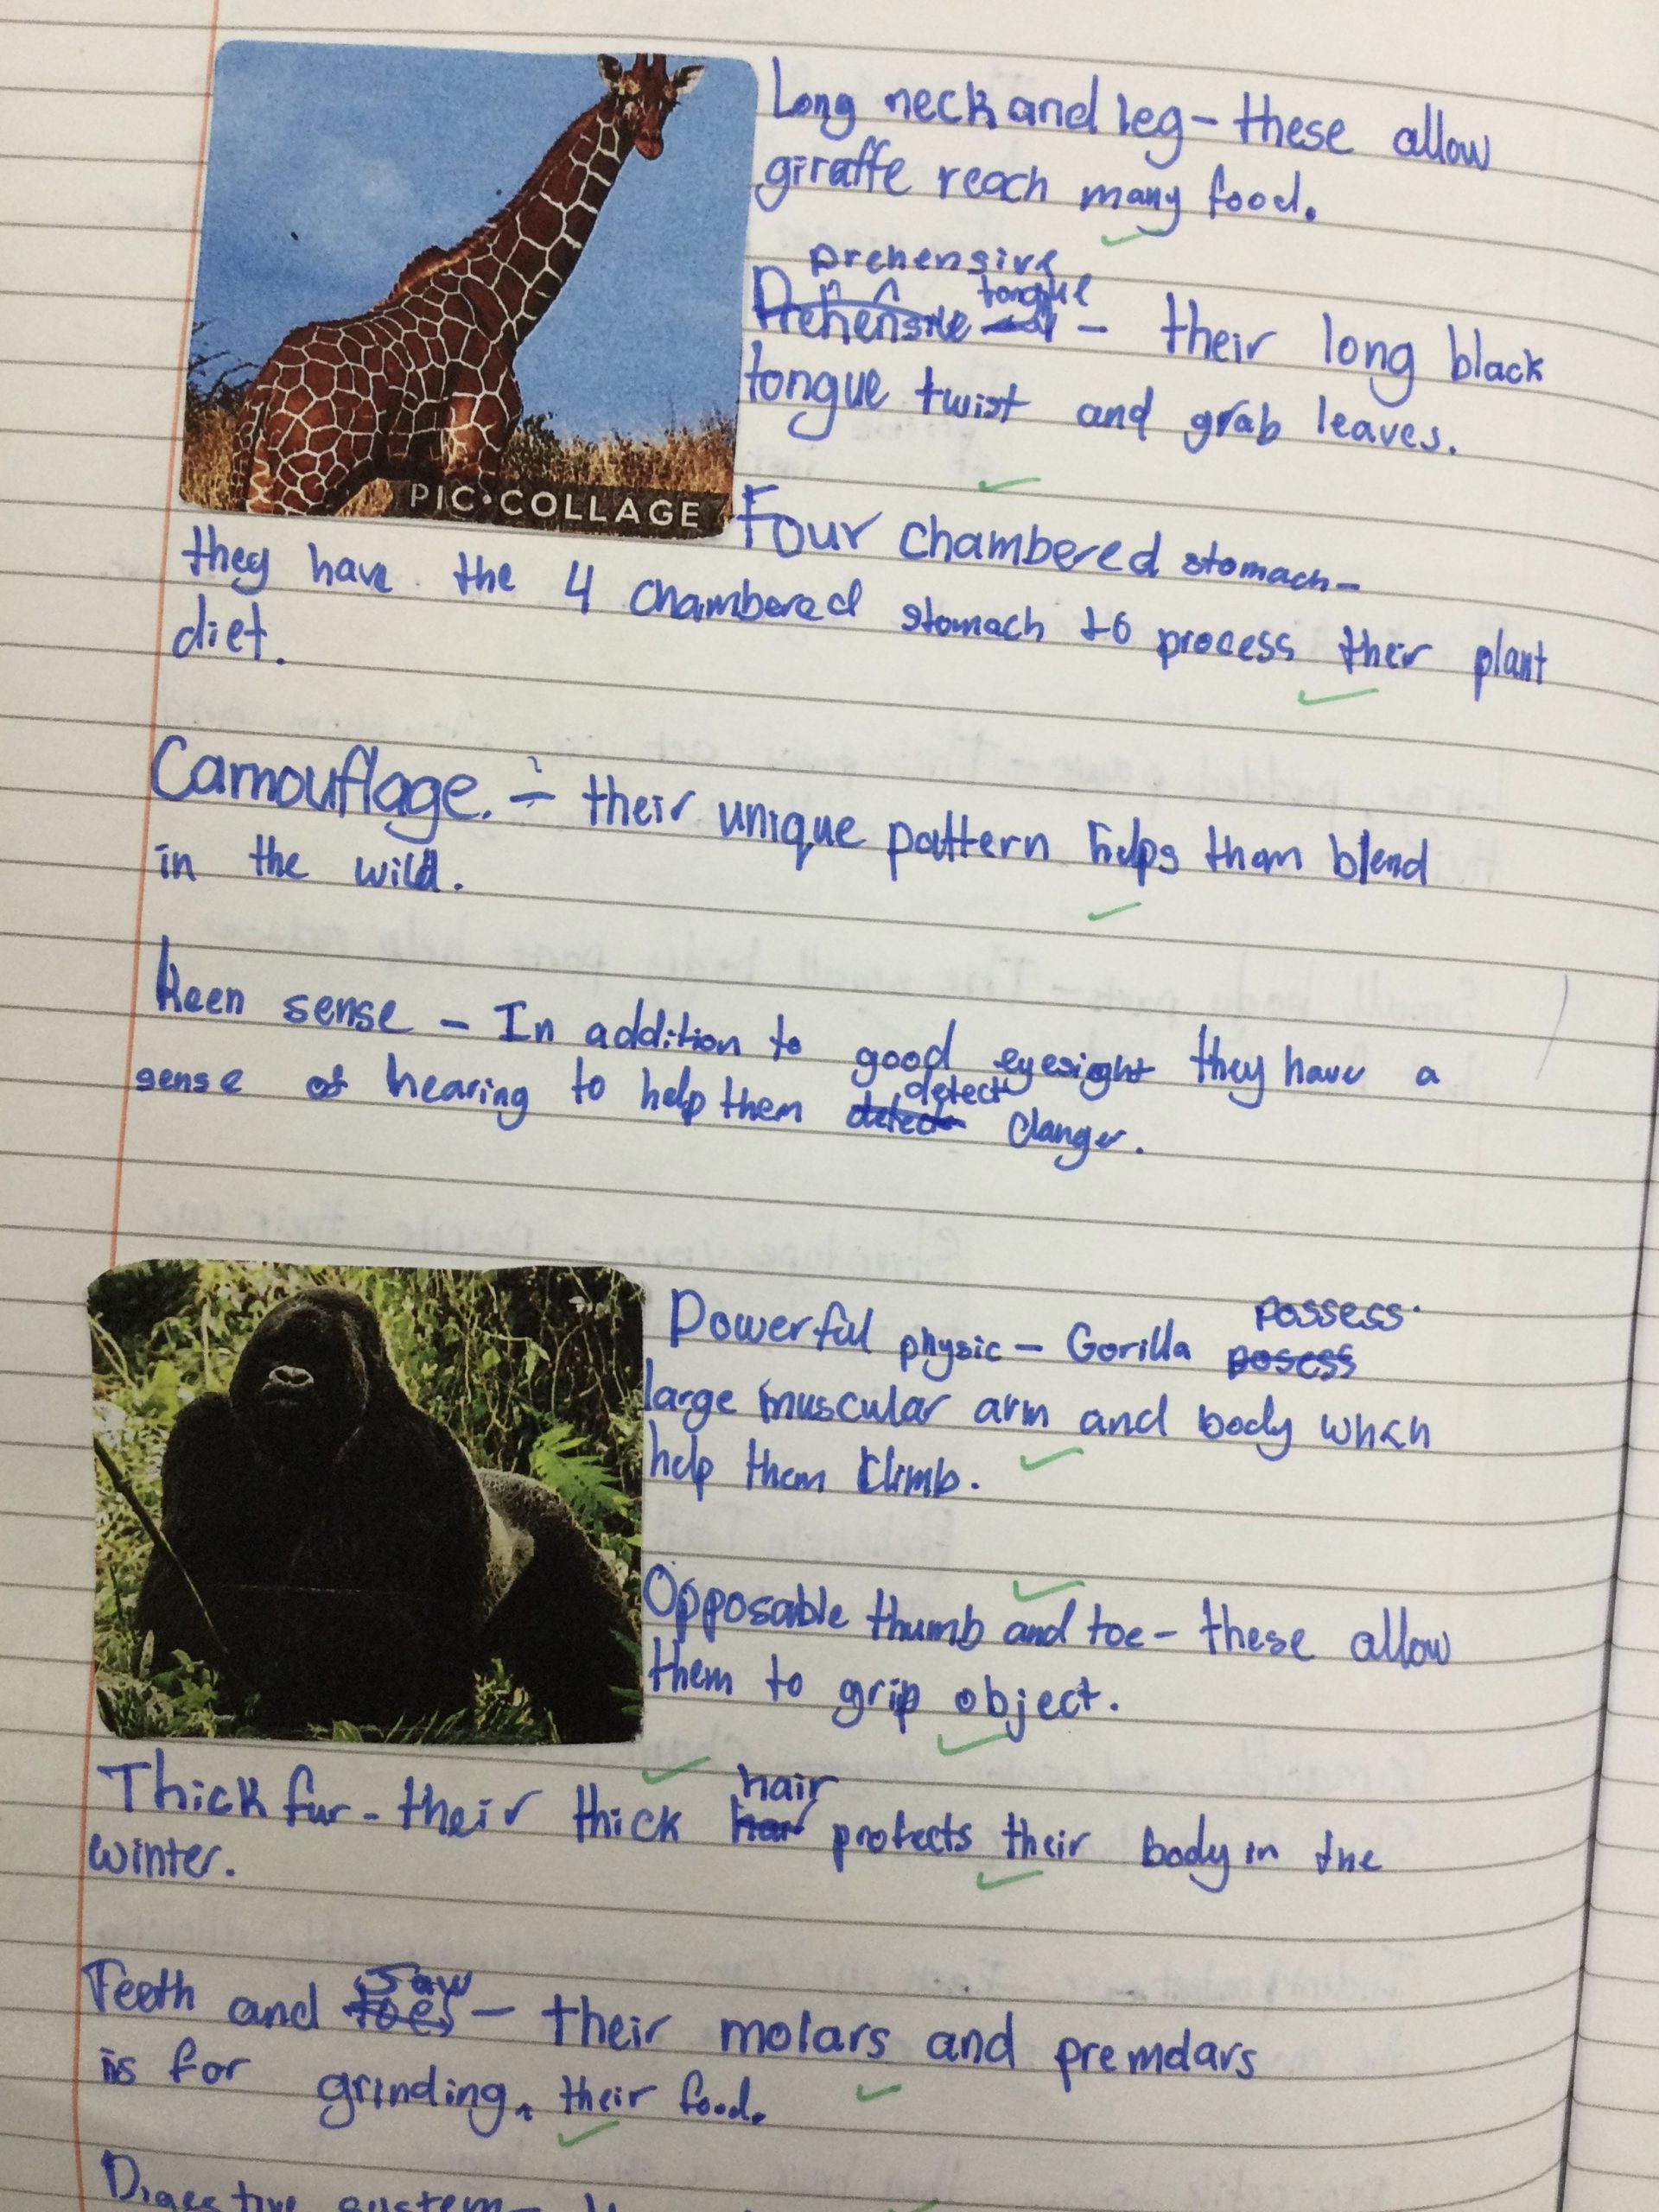 Long neck and leg - these allow
giraffe reach many food.
prehensive
Prehensile tongue - their long black
tongue twist and grab leaves.
PIC•COLLAGE
Four chambered stomach-
they have the 4 chambered stomach to process their plant
diet.
Camouflage. - their unique pattern helps them blend
in the wild.
Keen sense - In addition to good eyesight they have a
detect
sense of hearing to help them detect danger.
possess
Powerful physic - Gorilla posess
large muscular arm and body when
help them climb.
Opposable thumb and toe - these allow
them to grip object.
hair
Thick fur - their thick protects their body in the
winter.
Jaw
Teeth and toes - their molars and premolars
is for grinding, their food.
Digestive system -